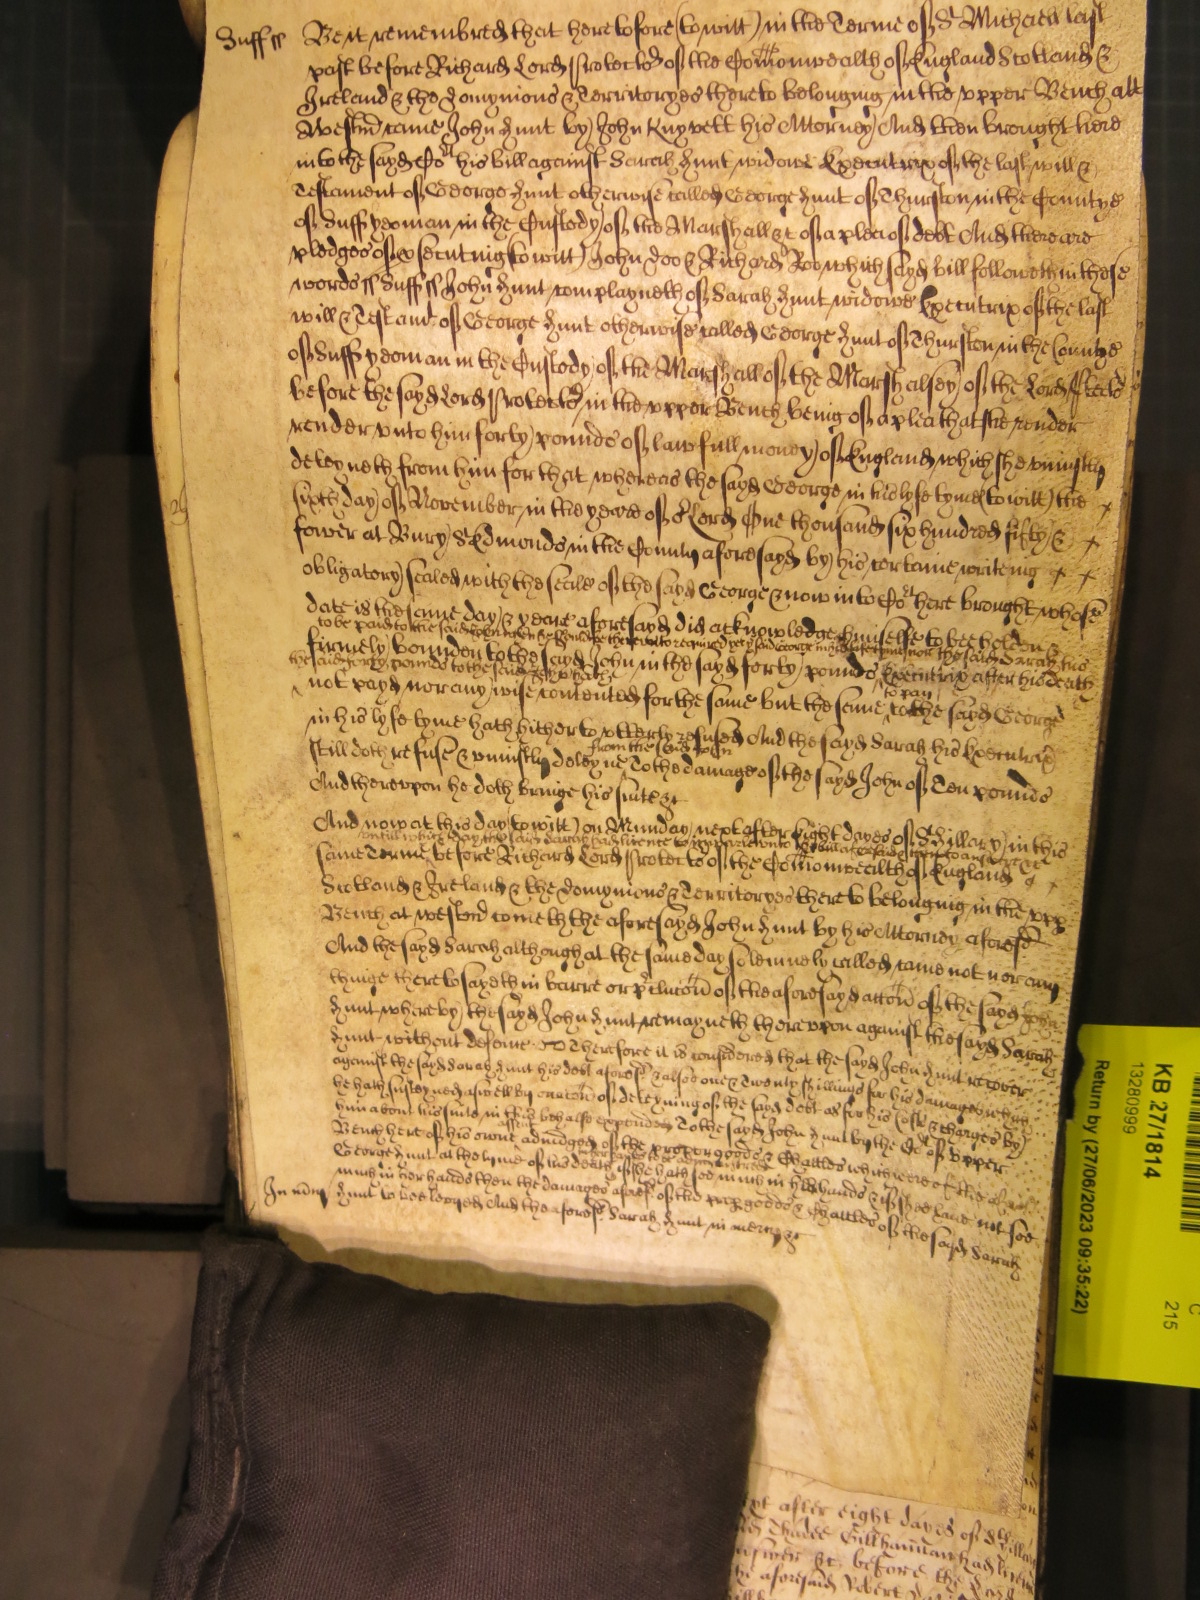 Suff ss Be it remembred that heretofore (to wit) in the Terme of St Michaell last
past before Richard Lord Protector of the Comonwealth of England Scotland &
Ireland & the Domynions & Territoryes thereto belonging in the vpper Bench att
Westmr came John Hunt by John Knyvett his Attorney And then brought here
into the sayd Cort his bill against Sarah Hunt widowe Executrix of the last will &
Testament of George Hunt otherwise called George Hunt of Thurston in the Countye
of Suff yeoman in the Custody of the Marshall &c of a plea of debt And there are
pledges of prosecuting (to witt) John Doo & Richard Roo which sayd bill followeth in these
words ss Suff ss John Hunt complayneth of Sarah Hunt widowe Executrix of the last
will & Testamt of George Hunt otherwise called George Hunt of Thurston in the Countye
of Suff yeoman in the Custody of the Marshall of the Marshalsey of the Lord Protector
before the sayd Lord Protector in the vpper Bench being of a plea that she render
render vnto him forty pounds of lawfull money of England which she vniustly
deteyneth from him for that whereas the sayd George in his lyfe tyme (to witt) the
sixth day of November in the yeare of or Lord One thousand six hundred fifty &
fower at Bury St Edmonds in the County aforesayd by his certaine writeing
obligatory sealed with the seale of the sayd George & now into Cort here brought whose
date is the same day & yeare aforesayd did acknowledge himselfe to bee holden &
to be paid to the said John when he should be therevnto required yet the said George in his lifetime nor the said Sarah his
firmely bounden to the sayd John in the sayd forty pounds Executrix after his death
the said forty pounds to the said John have
not payd nor any wise contented for the same but the same to pay to the sayd George
in his lyfe tyme hath hitherto vtterly refused And the sayd Sarah his Executrix
still doth refuse & vniustly deteyne from the said John To the damage of the sayd John of Ten pounds
And therevpon he doth bringe his suite &c
And now at this day (to witt) on Munday next after Eight dayes of St Hillary in this
vntill which day the said Sarah had licence to imparle vnto the bill aforesaid & then to answer &c
same Terme before Richard Lord Protector of the Comonwealth of England
Scotland & Ireland & the Domynions & Territoryes thereto belonging in the vpp
Bench at Westmr cometh the aforesayd John Hunt by his Attorney aforesd
And the sayd Sarah although at the same day solemnely called came not nor any
thinge thereto sayeth in barre or preclucon of the aforesayd accon of the sayd John
Hunt whereby the sayd John Hunt remayneth therevpon against the sayd Sarah
Hunt without defence Therefore it is considered that the sayd John Hunt recover
against the sayd Sarah Hunt his debt aforesd & also one & Twenty shillings for his damages which
he hath susteyned aswell by occacon of deteyning of the sayd debt as for his Costs & charges by
him about his suite in this behalfe expended To the sayd John Hunt by the Cort of vpper
Bench here of his owne assent adiudged of the proper goods & Chattles which were of the
George Hunt at the tyme of his death in her hands to be administred if she hath soe much in her hands & if she have not soe
much in her hands then the damages aforesd of the proper goods & Chattles of the sayd Sarah
In mcy Hunt to bee levyed And the aforesd Sarah Hunt in mercy &c
after eight dayes of St Hillary
before the Lord
the aforesaid Robert
KB 27/1814
13280999
Return by (27/06/2023 09:35:22)
C
215